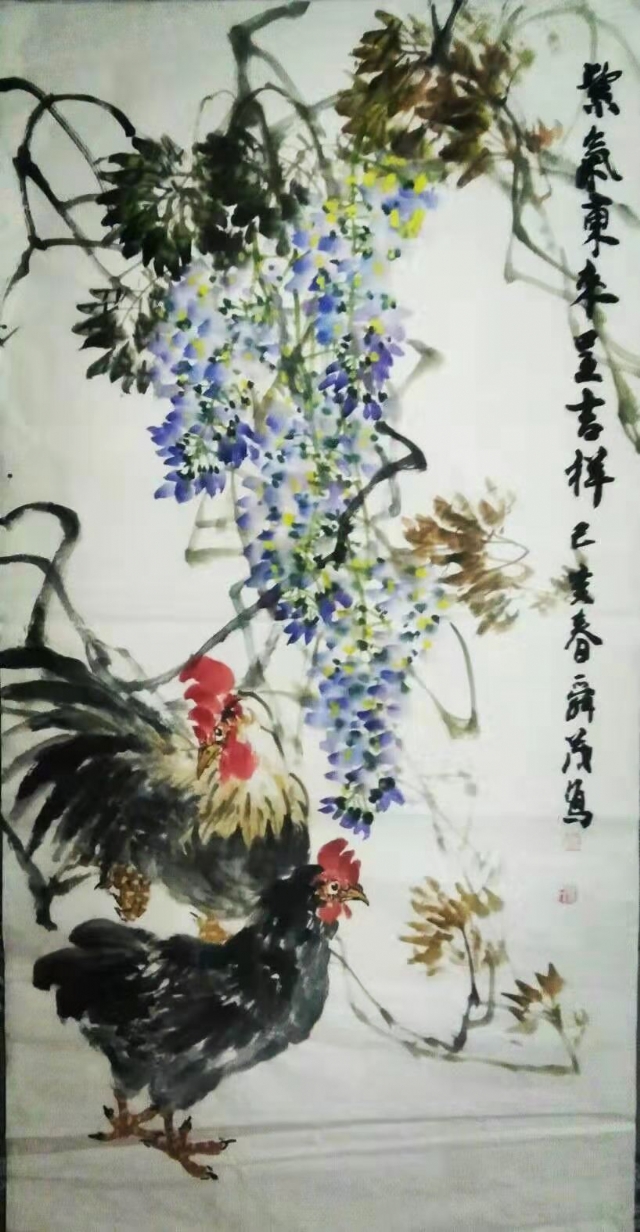 紫氣東来呈吉祥己亥春舜茂寫